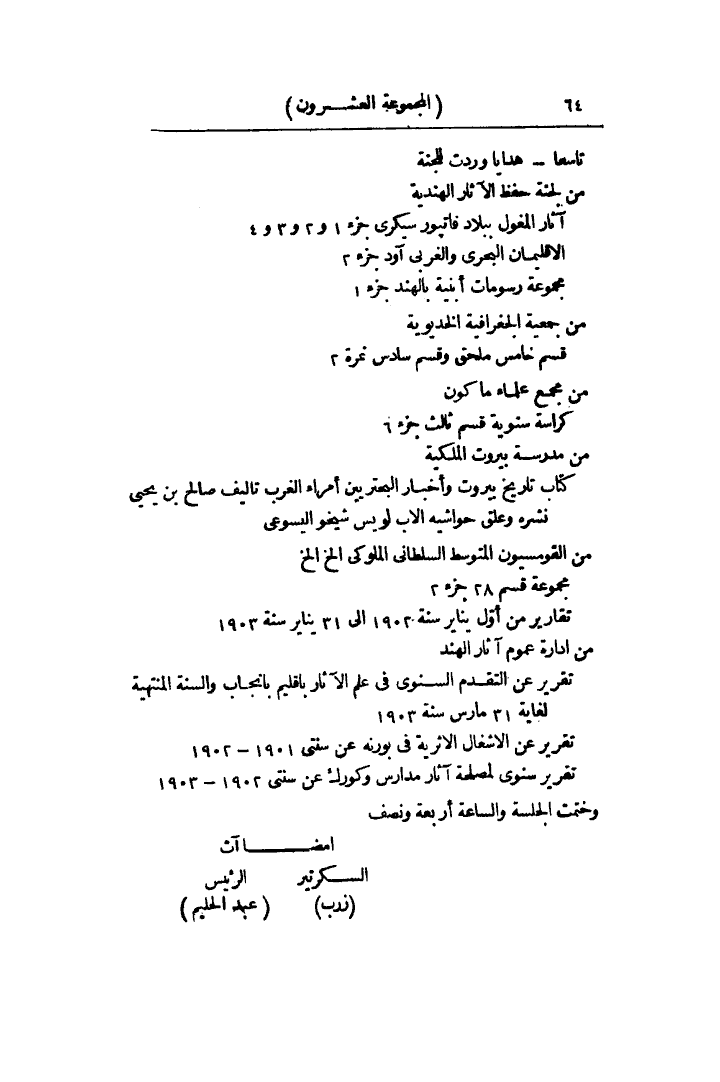 ٦٤ (المجموعة العشـــرون)
تاسعا — هدايا وردت للجنة
من لجنة حفظ الآثار الهندية
آثار المغول ببلاد فاتپور سيكرى جزء ١ و ٢ و ٣ و ٤
الاقليمان البحرى والغربى آود جزء ٢
مجموعة رسومات أبنية بالهند جزء ١
من جمعية الجغرافية الخديوية
قسم خامس ملحق وقسم سادس نمرة ٢
من مجمع علماء ماكون
كراسة سنوية قسم ثالث جزء ٦
من مدرسة بيروت الملكية
كتاب تاريخ بيروت وأخبار البحتريين أمراء الغرب تاليف صالح بن يحيى
نشره وعلق حواشيه الاب لويس شيخو اليسوعى
من القومسيون المتوسط السلطانى الملوكى الخ الخ
مجموعة قسم ٢٨ جزء ٢
تقارير من أوّل يناير سنة ١٩٠٢ الى ٣١ يناير سنة ١٩٠٣
من ادارة عموم آثار الهند
تقرير عن التقدم السنوى فى علم الآثار باقليم بانجاب والسنة المنتهية
لغاية ٣١ مارس سنة ١٩٠٣
تقرير عن الاشغال الاثرية فى بورنه عن سنتى ١٩٠١ — ١٩٠٢
تقرير سنوى لمصلحة آثار مدارس وكورك عن سنتى ١٩٠٢ — ١٩٠٣
وختمت الجلسة والساعة أربعة ونصف
امضـــــاآت
السكرتير الرئيس
(زدب) (عبد الحليم)